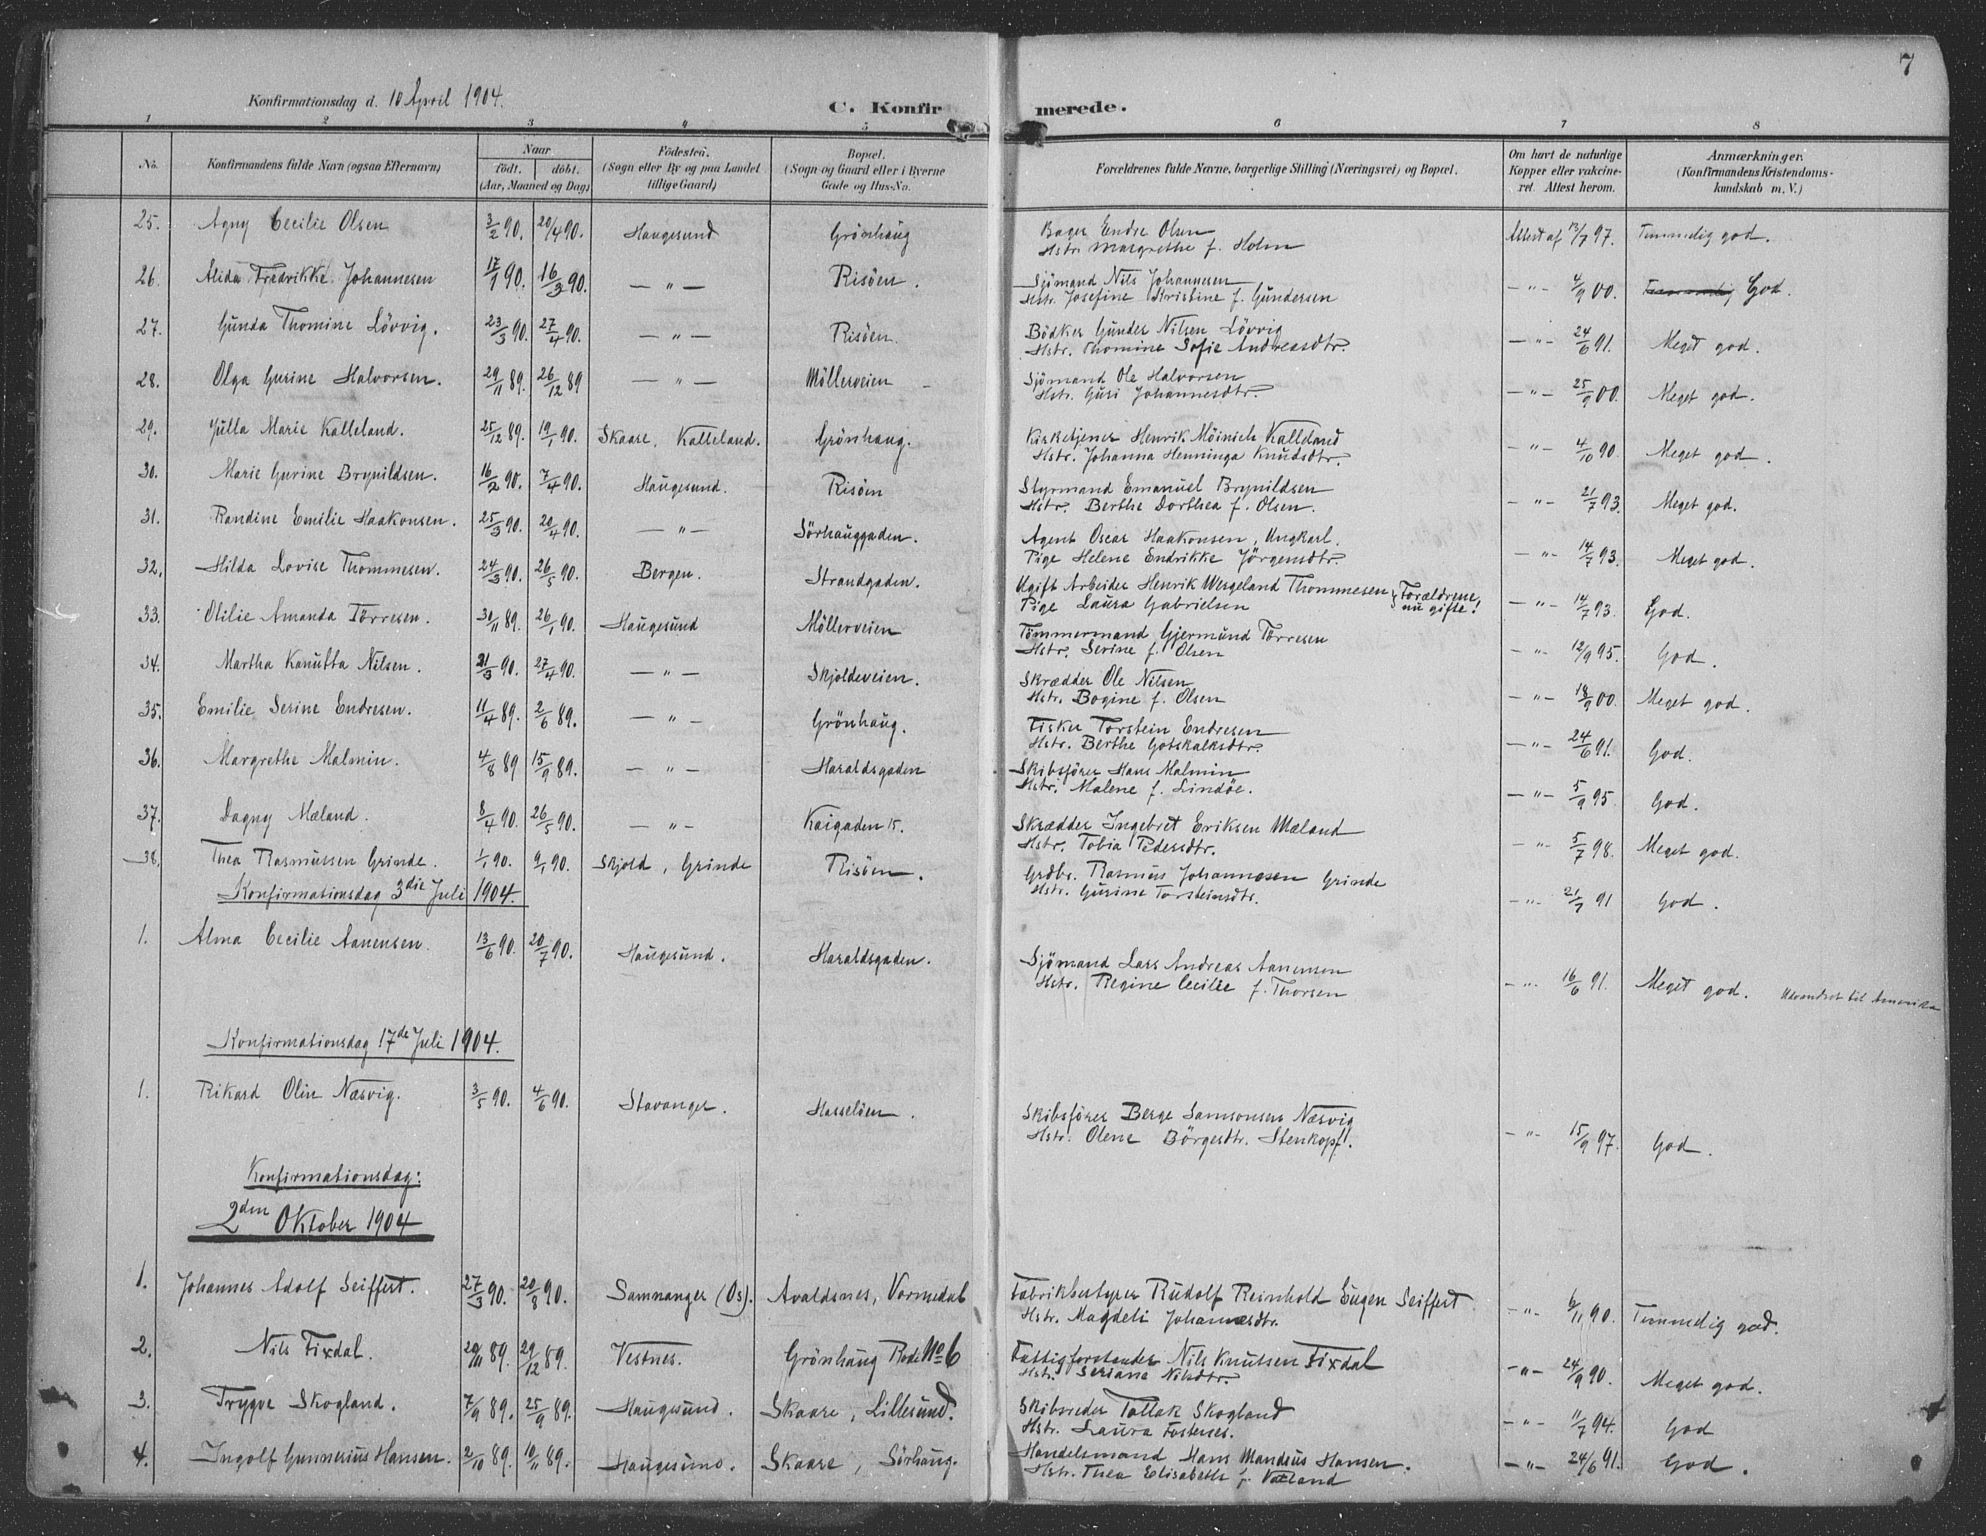 7
Konfirmationsdag d. 10 April 1904.
C. Konfirmerede.
1 2 3 4 5 6 7 8
No. Konfirmandens fulde Navn (ogsaa Efternavn) Naar født. døbt. (Aar, Maaned og Dag) Fødested. (Sogn eller By og paa Landet tillige Gaard) Bopæl. (Sogn og Gaard eller i Byerne Gade og Hus-No. Forældrenes fulde Navne, borgerlige Stilling (Næringsvei) og Bopæl. Om havt de naturlige Kopper eller vakcineret. Attest herom. Anmærkninger. (Konfirmandens Kristendomskundskab m. V.)
25. Agny Cecilie Olsen 3/2 90. 20/4 90. Haugesund Grönhaug Bager Endre Olsen Attest af 13/7 97. Temmelig god.
Hstr. Margrethe f. Holm
26. Alida Fredrikke Johannesen 17/1 90. 16/3 90. — " — Risöen. Sjömand Nils Johannesen — " — 4/9 00. Temmelig God.
Hstr. Josefine Kristine f. Gundersen
27. Gunda Thomine Lövvig. 23/3 90. 27/4 90. — " — Risöen. Bödker Gunder Nilsen Lövvig — " — 24/6 91. Meget god.
Hstr. Thomine Sofie Andreasdtr.
28. Olga Gurine Halvorsen. 29/11 89. 26/12 89 — " — Möllerveien Sjömand Ole Halvorsen — " — 25/9 00. Meget god.
Hstr. Guri Johannesdtr.
29. Jutta Marie Kalleland. 25/12 89. 19/1 90. Skaare, Kalleland. Grönhaug. Kirketjener Henrik Möinich Kalleland — " — 4/10 90. Meget god.
Hstr. Johanna Henninga Knudsdtr.
30. Marie Gurine Brynildsen. 16/2 90. 7/4 90. Haugesund. Risöen Styrmand Emanuel Brynildsen — " — 21/7 93. Meget god.
Hstr. Berthe Dorthea f. Olsen.
31. Randine Emilie Haakonsen. 25/3 90. 20/4 90. — " — Sörhauggaden. Agent Oscar Haakonsen, Ungkarl. — " — 14/7 93. Meget god.
Pige Helene Endrikke Jörgensdtr.
32. Hilda Lovise Thommesen. 24/3 90. 26/5 90. Bergen. Strandgaden. Ugift Arbeider Henrik Wergeland Thommesen Forældrene — " — 14/7 93. God.
Pige Laura Gabrielsen nu gifte!
33. Otilie Amanda Törresen. 30/11 89. 26/1 90. Haugesund Möllerveien Tömmermand Gjermund Törresen — " — 12/9 95. God.
Hstr. Serine f. Olsen
34. Martha Knutta Nilsen. 21/3 90. 27/4 90. — " — Skjoldeveien. Skrædder Ole Nilsen — " — 18/9 00. Meget god.
Hstr. Bogine f. Olsen
35. Emilie Serine Endresen. 11/4 89. 2/6 89. — " — Grönhaug. Fisker Torstein Endresen — " — 24/6 91. God.
Hstr. Berthe Gotskalksdtr.
36. Margrethe Malmin. 4/8 89 15/9 89. — " — Haraldsgaden Skibsförer Hans Malmin — " — 5/9 95. God.
Hstr. Malene f. Lindöe.
37. Dagny Mæland. 8/4 90. 26/5 90. — " — Kaigaden 15. Skrædder Ingebret Eriksen Mæland — " — 5/7 98. Meget god.
Hstr. Tobia Pedersdtr.
38. Thea Rasmussen Grinde. 1/1 90. 9/1 90. Skjold, Grinde Risöen. Grdbr. Rasmus Johannesen Grinde — " — 21/7 91 God.
Hstr. Gurine Torsteinsdtr.
Konfirmationsdag 3die Juli 1904.
1. Alma Cecilie Aanensen. 13/6 90. 20/7 90. Haugesund. Haraldsgaden. Sjömand Lars Andreas Aanensen — " — 16/6 91. Meget god. Udvandret til Amerika
Hstr. Regine Cecilie f. Thorsen
Konfirmationsdag 17de Juli 1904.
1. Rikard Olin Næsvig. 3/5 90. 4/6 90. Stavanger. Hasselöen. Skibsförer Berge Samsonsen Næsvig — " — 15/9 97. God.
Hstr. Olene Börgesdtr. Stenkopf.
Konfirmationsdag:
2den Oktober 1904
1. Johannes Adolf Seiffert. 27/3 90. 20/8 90. Samnanger (Os). Avaldsnes, Vormedal Fabrikbestyrer Rudolf Reinhold Eugen Seiffert — " — 6/11 90. Temmelig god.
Hstr. Magdeli Johannesdtr.
2. Nils Fixdal. 20/11 89. 29/12 89. Vestnes. Grönhaug Rode No 6 Fattigforstander Nils Knutsen Fixdal — " — 24/9 90. Meget god.
Hstr. Seriane Nilsdtr.
3. Trygve Skogland. 7/9 89. 25/9 89. Haugesund. Skaare, Lillesund. Skibsreder Tallak Skogland — " — 11/7 94. God
Hstr. Laura Fosteness.
4. Ingolf Gunnerius Hansen. 2/10 89. 10/11 89. Haugesund. Skaare, Sörhaug. Handelsmand Hans Mandeus Hansen. — " — 24/6 91. God.
Hstr. Thea Elisabeth f. Valand